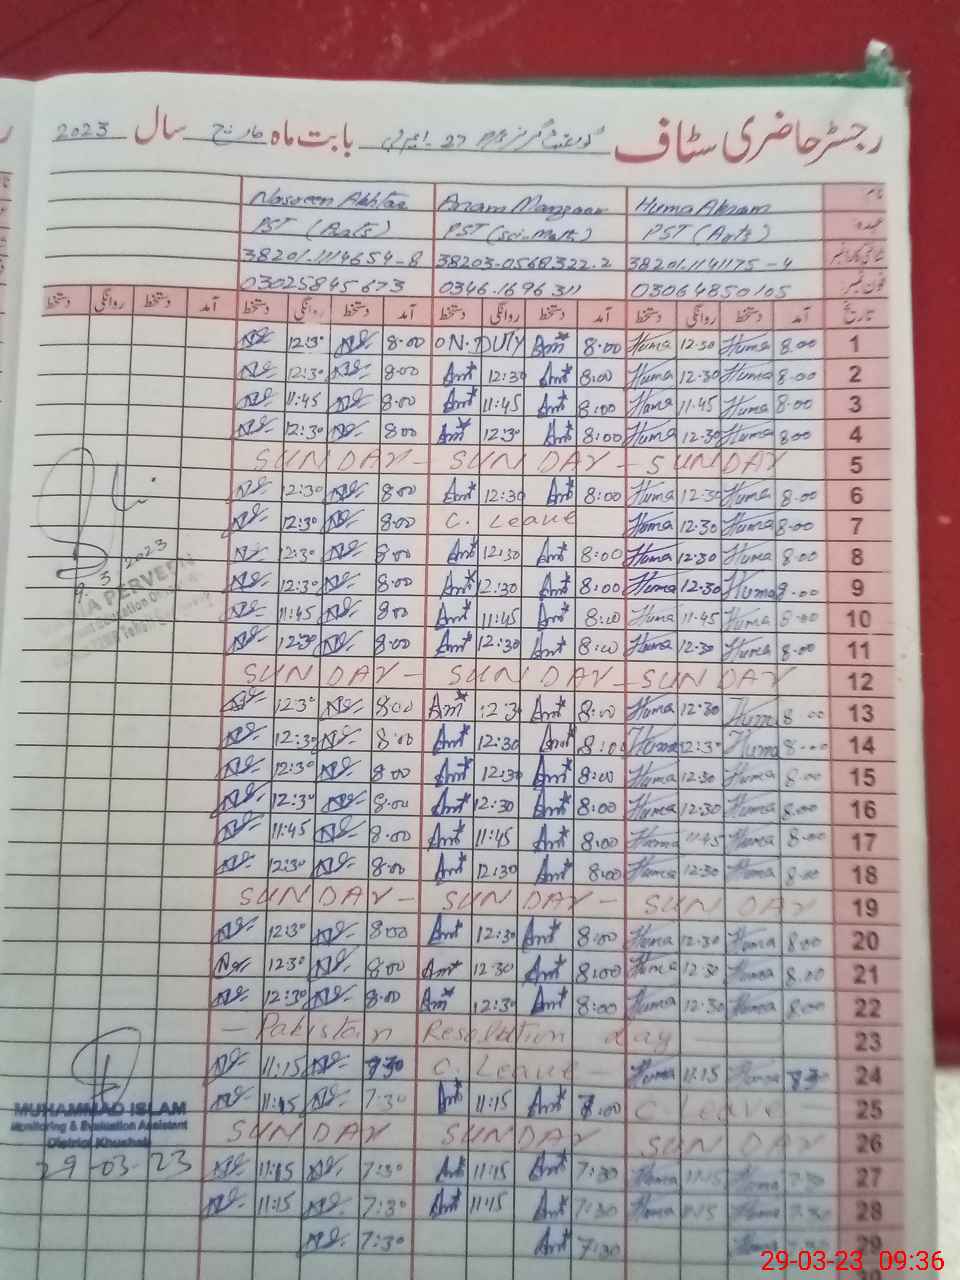 رجسٹر حاضری سٹاف بابت ماہ مارچ سال 2023
Nasreen Akhtar Anam Manzoor Huma Akram نام
PST (Arts) PST (Sci-Math) PST (Arts) عہدہ
38201-1114654-8 38203-0568322-2 38201-1141175-4
03025845673 0346-1696311 03064850105 فون نمبر
دستخط روانگی دستخط آمد دستخط روانگی دستخط آمد دستخط روانگی دستخط آمد دستخط روانگی دستخط آمد تاریخ
12:30 8:00 ON. DUTY Am* 8:00 Huma 12:30 Huma 8:00 1
12:30 8:00 Am* 12:30 Am* 8:00 Huma 12:30 Huma 8:00 2
11:45 8:00 Am* 11:45 Am* 8:00 Huma 11:45 Huma 8:00 3
12:30 8:00 Am* 12:30 Am* 8:00 Huma 12:30 Huma 8:00 4
SUNDAY - SUNDAY - SUNDAY 5
12:30 8:00 Am* 12:30 Am* 8:00 Huma 12:30 Huma 8:00 6
12:30 8:00 C. Leave Huma 12:30 Huma 8:00 7
12:30 8:00 Am* 12:30 Am* 8:00 Huma 12:30 Huma 8:00 8
12:30 8:00 Am* 12:30 Am* 8:00 Huma 12:30 Huma 8:00 9
11:45 8:00 Am* 11:45 Am* 8:00 Huma 11:45 Huma 8:00 10
12:30 8:00 Am* 12:30 Am* 8:00 Huma 12:30 Huma 8:00 11
SUNDAY - SUNDAY - SUNDAY 12
12:30 8:00 Am* 12:30 Am* 8:00 Huma 12:30 Huma 8:00 13
12:30 8:00 Am* 12:30 Am* 8:00 Huma 12:30 Huma 8:00 14
12:30 8:00 Am* 12:30 Am* 8:00 Huma 12:30 Huma 8:00 15
12:30 8:00 Am* 12:30 Am* 8:00 Huma 12:30 Huma 8:00 16
11:45 8:00 Am* 11:45 Am* 8:00 Huma 11:45 Huma 8:00 17
12:30 8:00 Am* 12:30 Am* 8:00 Huma 12:30 Huma 8:00 18
SUNDAY - SUNDAY - SUNDAY 19
12:30 8:00 Am* 12:30 Am* 8:00 Huma 12:30 Huma 8:00 20
12:30 8:00 Am* 12:30 Am* 8:00 Huma 12:30 Huma 8:00 21
12:30 8:00 Am* 12:30 Am* 8:00 Huma 12:30 Huma 8:00 22
- Pakistan Resolution day 23
11:15 7:30 C. Leave - Huma 11:15 Huma 24
11:15 7:30 Am* 11:15 Am* C. Leave - 25
SUNDAY SUNDAY SUNDAY 26
11:15 7:30 Am* 11:15 Am* 7:30 Huma 11:15 Huma 7:30 27
11:15 7:30 Am* 11:15 Am* 7:30 Huma 11:15 Huma 7:30 28
7:30 Am* 7:30 Huma 7:30 29
9.3.2023
PERVEEN
MUHAMMAD ISLAM
Monitoring & Evaluation Assistant
District Khushab
29-03-23
29-03-23 09:36